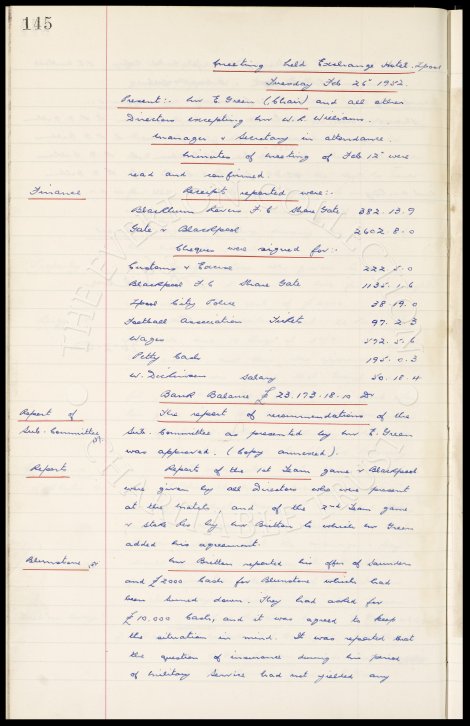 145
Meeting held Exchange Hotel. Lpool
Tuesday Feb 26th 1952.
Present:- Mr E. Green (Chair) and all other
Directors excepting Mr W. R. Williams.
Manager & Secretary in attendance.
Minutes of meeting of Feb 12th were
read and confirmed.
Finance
Receipts reported were:-
Blackburn Rovers F.C Share Gate 382.13.9
Gate v Blackpool 2602.8.0
Cheques were signed for:-
Customs & Excise 222.5.0
Blackpool F.C Share Gate 1135.1.6
Lpool City Police 38.19.0
Football Association Tickets 97.2.3
Wages 572.5.6
Petty Cash 195.0.3
W. Dickinson Salary 50.18.4
Bank Balance £ 23.173.18.10 Dr
Report of
Sub. Committee
The report of recommendations of the
Sub. Committee as presented by Mr E. Green
was approved. (Copy annexed).
Reports
Report of the 1st Team game v Blackpool
were given by all Directors who were present
at the match and of the 2nd Team game
v Stoke Res by Mr Britton to which Mr Green
added his agreement.
Blunstone
Mr Britton reported his offer of Saunders
and £2000 Cash for Blunstone which had
been turned down. They had asked for
£10.000 Cash, and it was agreed to keep
the situation in mind. It was reported that
the question of insurance during his period
of Military Service had not yielded any
THE EVERTON COLLECTION